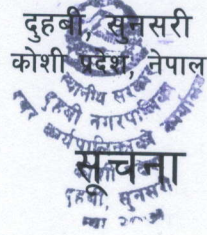 दुहबी, सुनसरी
कोशी प्रदेश, नेपाल
स्थानीय सरकार
दुहबी नगरपालिका
नगर कार्यपालिकाको कार्यालय
सूचना
दुहबी, सुनसरी